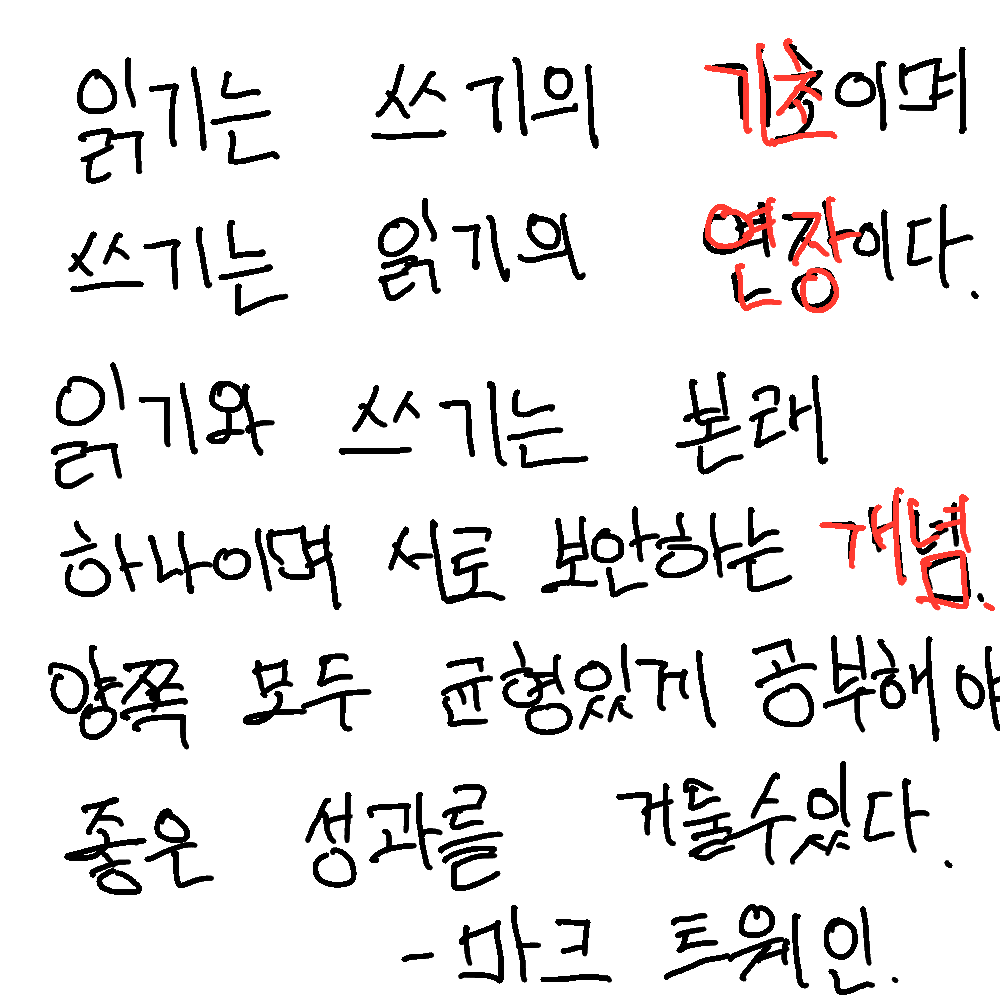 읽기는 쓰기의 기초이며
쓰기는 읽기의 연장이다.
읽기와 쓰기는 본래
하나이며 서로 보안하는 개념.
양쪽 모두 균형있게 공부해야
좋은 성과를 거둘수있다.
-마크 트웨인.